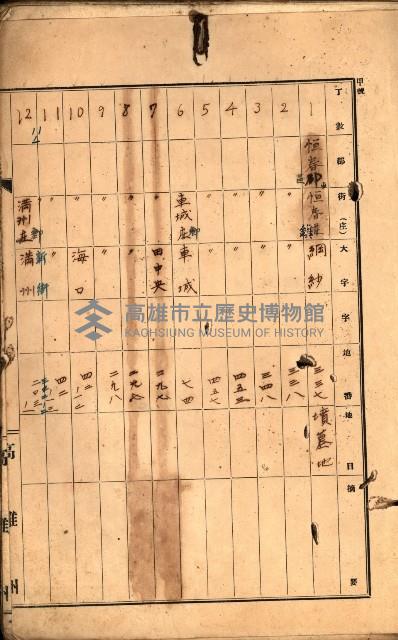 甲號
丁數 郡 街(庄) 大字 字 地番 地目 摘要
1 恒春郡 恒春 網紗 三三七 墳墓地
2 〃 〃 三三八
3 〃 〃 三四八
4 〃 〃 四五三
5 〃 〃 四五七
6 〃 車城庄 車城 七四
7 〃 〃 田中央 二九七
8 〃 〃 〃 二九七
9 〃 〃 〃 二九八
10 〃 〃 海口
11 〃 〃
12 〃 滿州庄 滿州
高雄州
高雄市立歷史博物館
KAOHSIUNG MUSEUM OF HISTORY